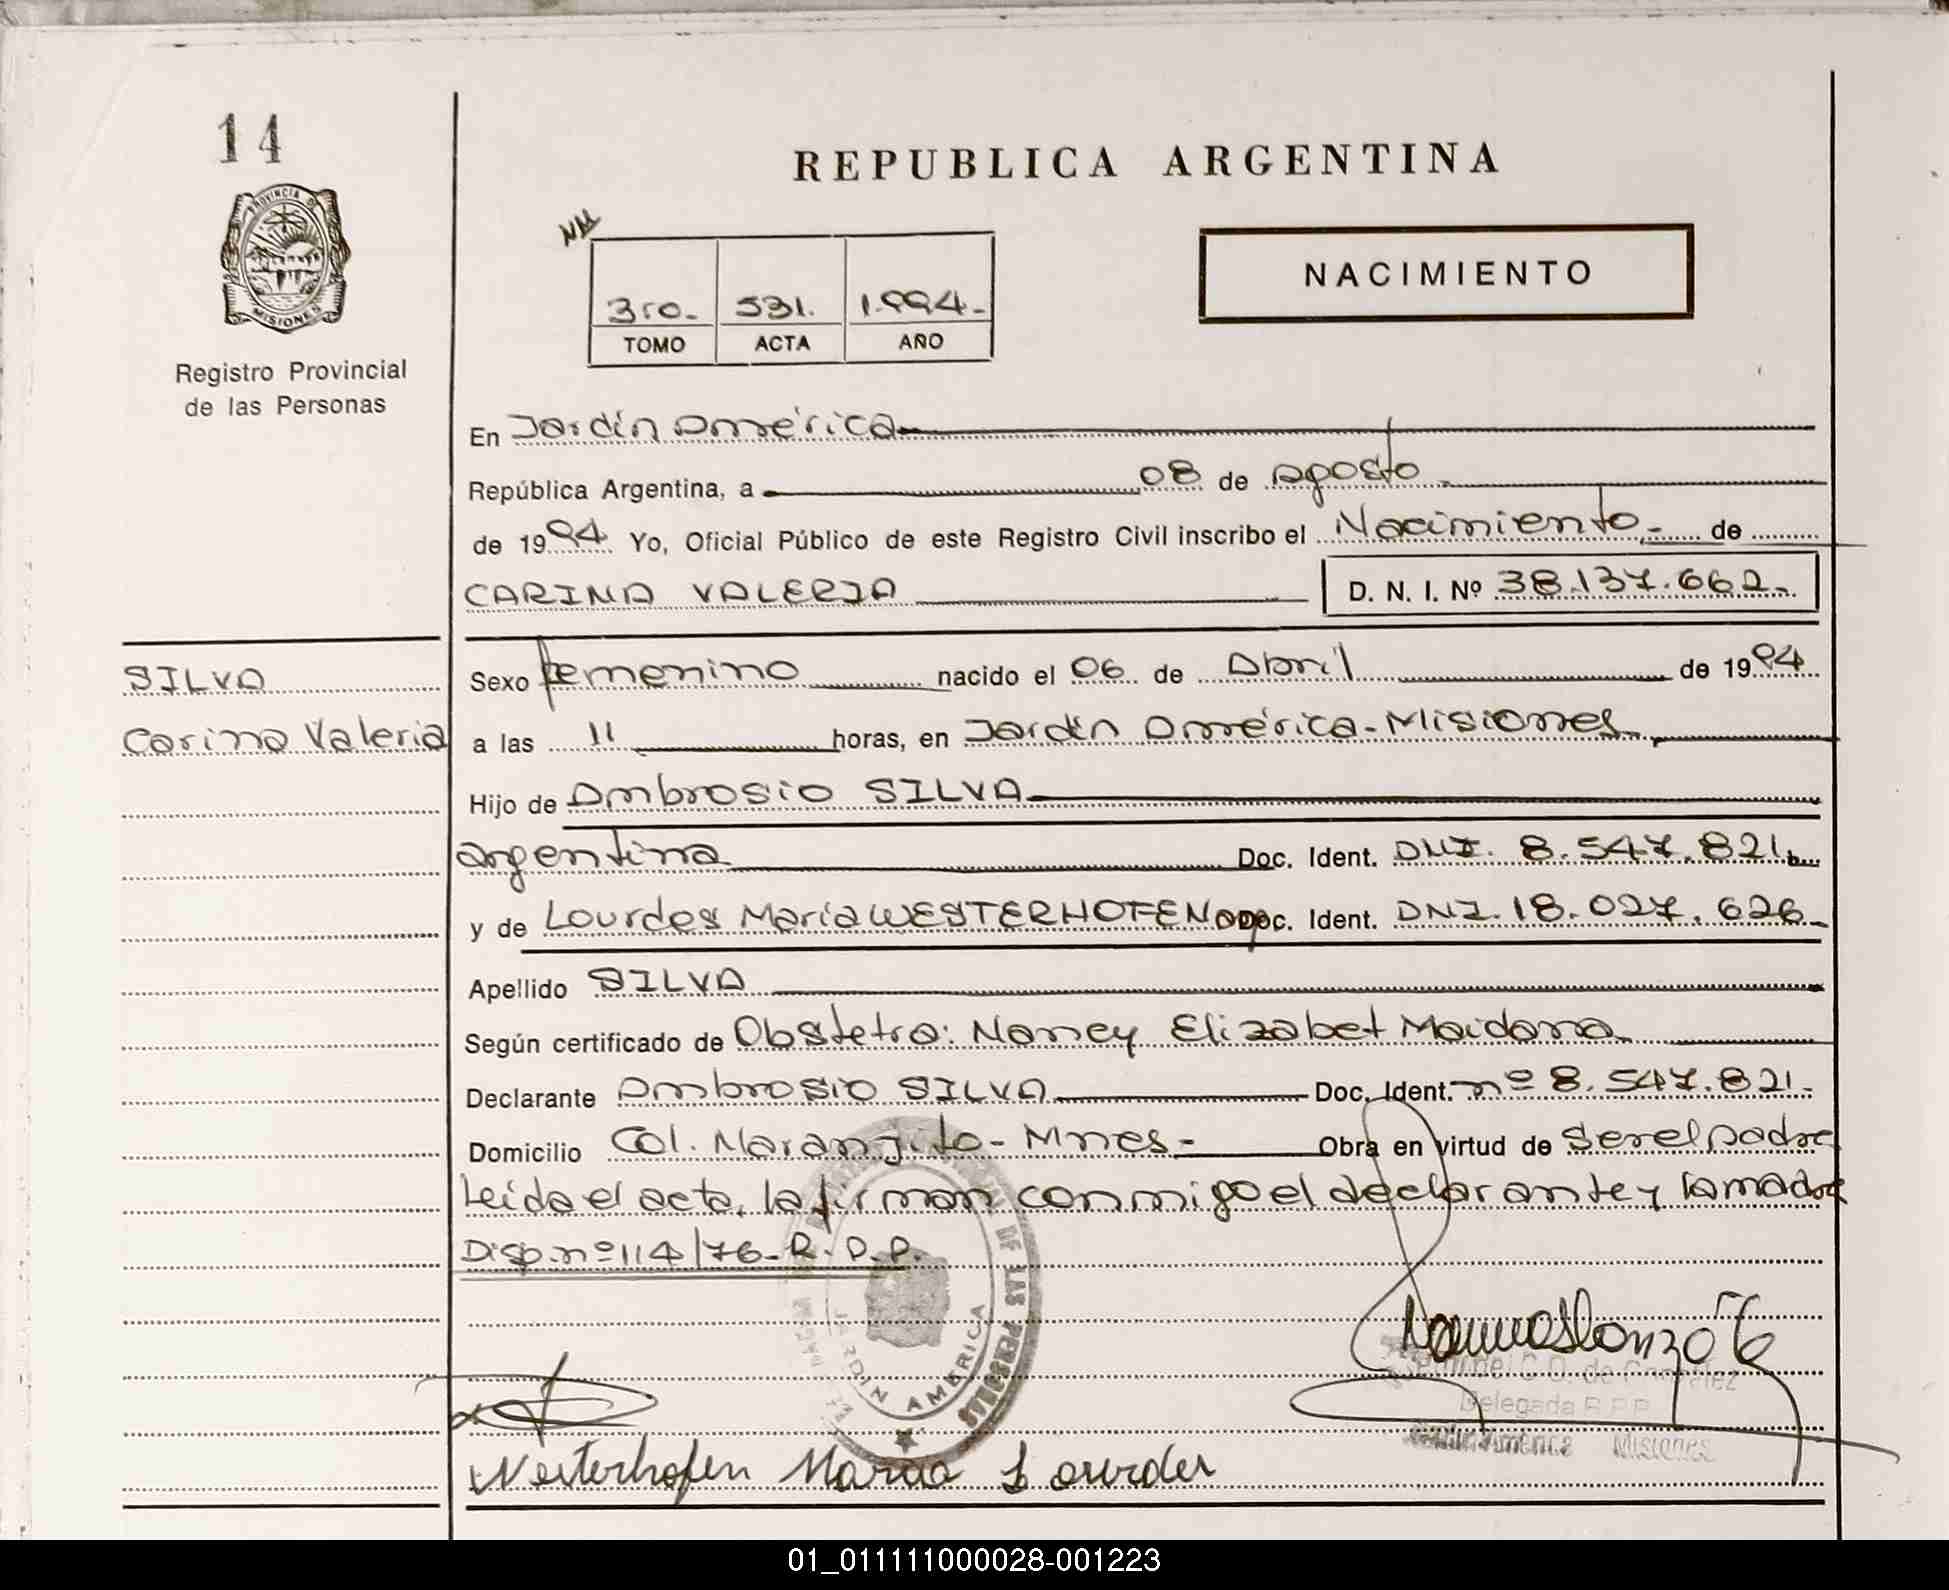 14
PROVINCIA DE
MISIONES
Registro Provincial
de las Personas
REPUBLICA ARGENTINA
NM
3ro. 531. 1.994.-
TOMO ACTA AÑO
NACIMIENTO
En Jardín América
República Argentina, a 08 de agosto
de 1994 Yo, Oficial Público de este Registro Civil inscribo el Nacimiento.- de
CARINA VALERIA D. N. I. Nº 38.137.662.-
SILVA
Carina Valeria
Sexo femenino nacido el 06 de Abril de 1994
a las 11 horas, en Jardín América-Misiones
Hijo de Ambrosio SILVA
argentina Doc. Ident. DNI. 8.547.821
y de Lourdes María WESTERHOFEN Doc. Ident. DNI. 18.027.626
Apellido SILVA
Según certificado de Obstetra: Nancy Elizabet Maidana
Declarante Ambrosio SILVA Doc. Ident. nº 8.547.821.
Domicilio Col. Naranjito- Mnes- Obra en virtud de ser el padre
Leida el acta, la firman conmigo el declarante y la madre
Disp. nº 114/76-R.P.P.
DE LAS PERSONAS
JARDIN AMERICA
Delegada R.P.P.
Misiones
Westerhofen Maria Lourdes
01_011111000028-001223